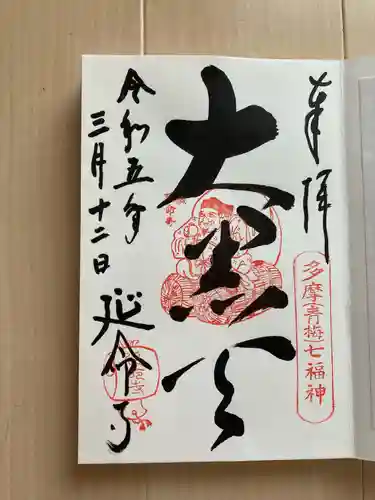 奉拝
多摩(青梅)七福神
大黒天
令和五年
三月十二日
延命寺